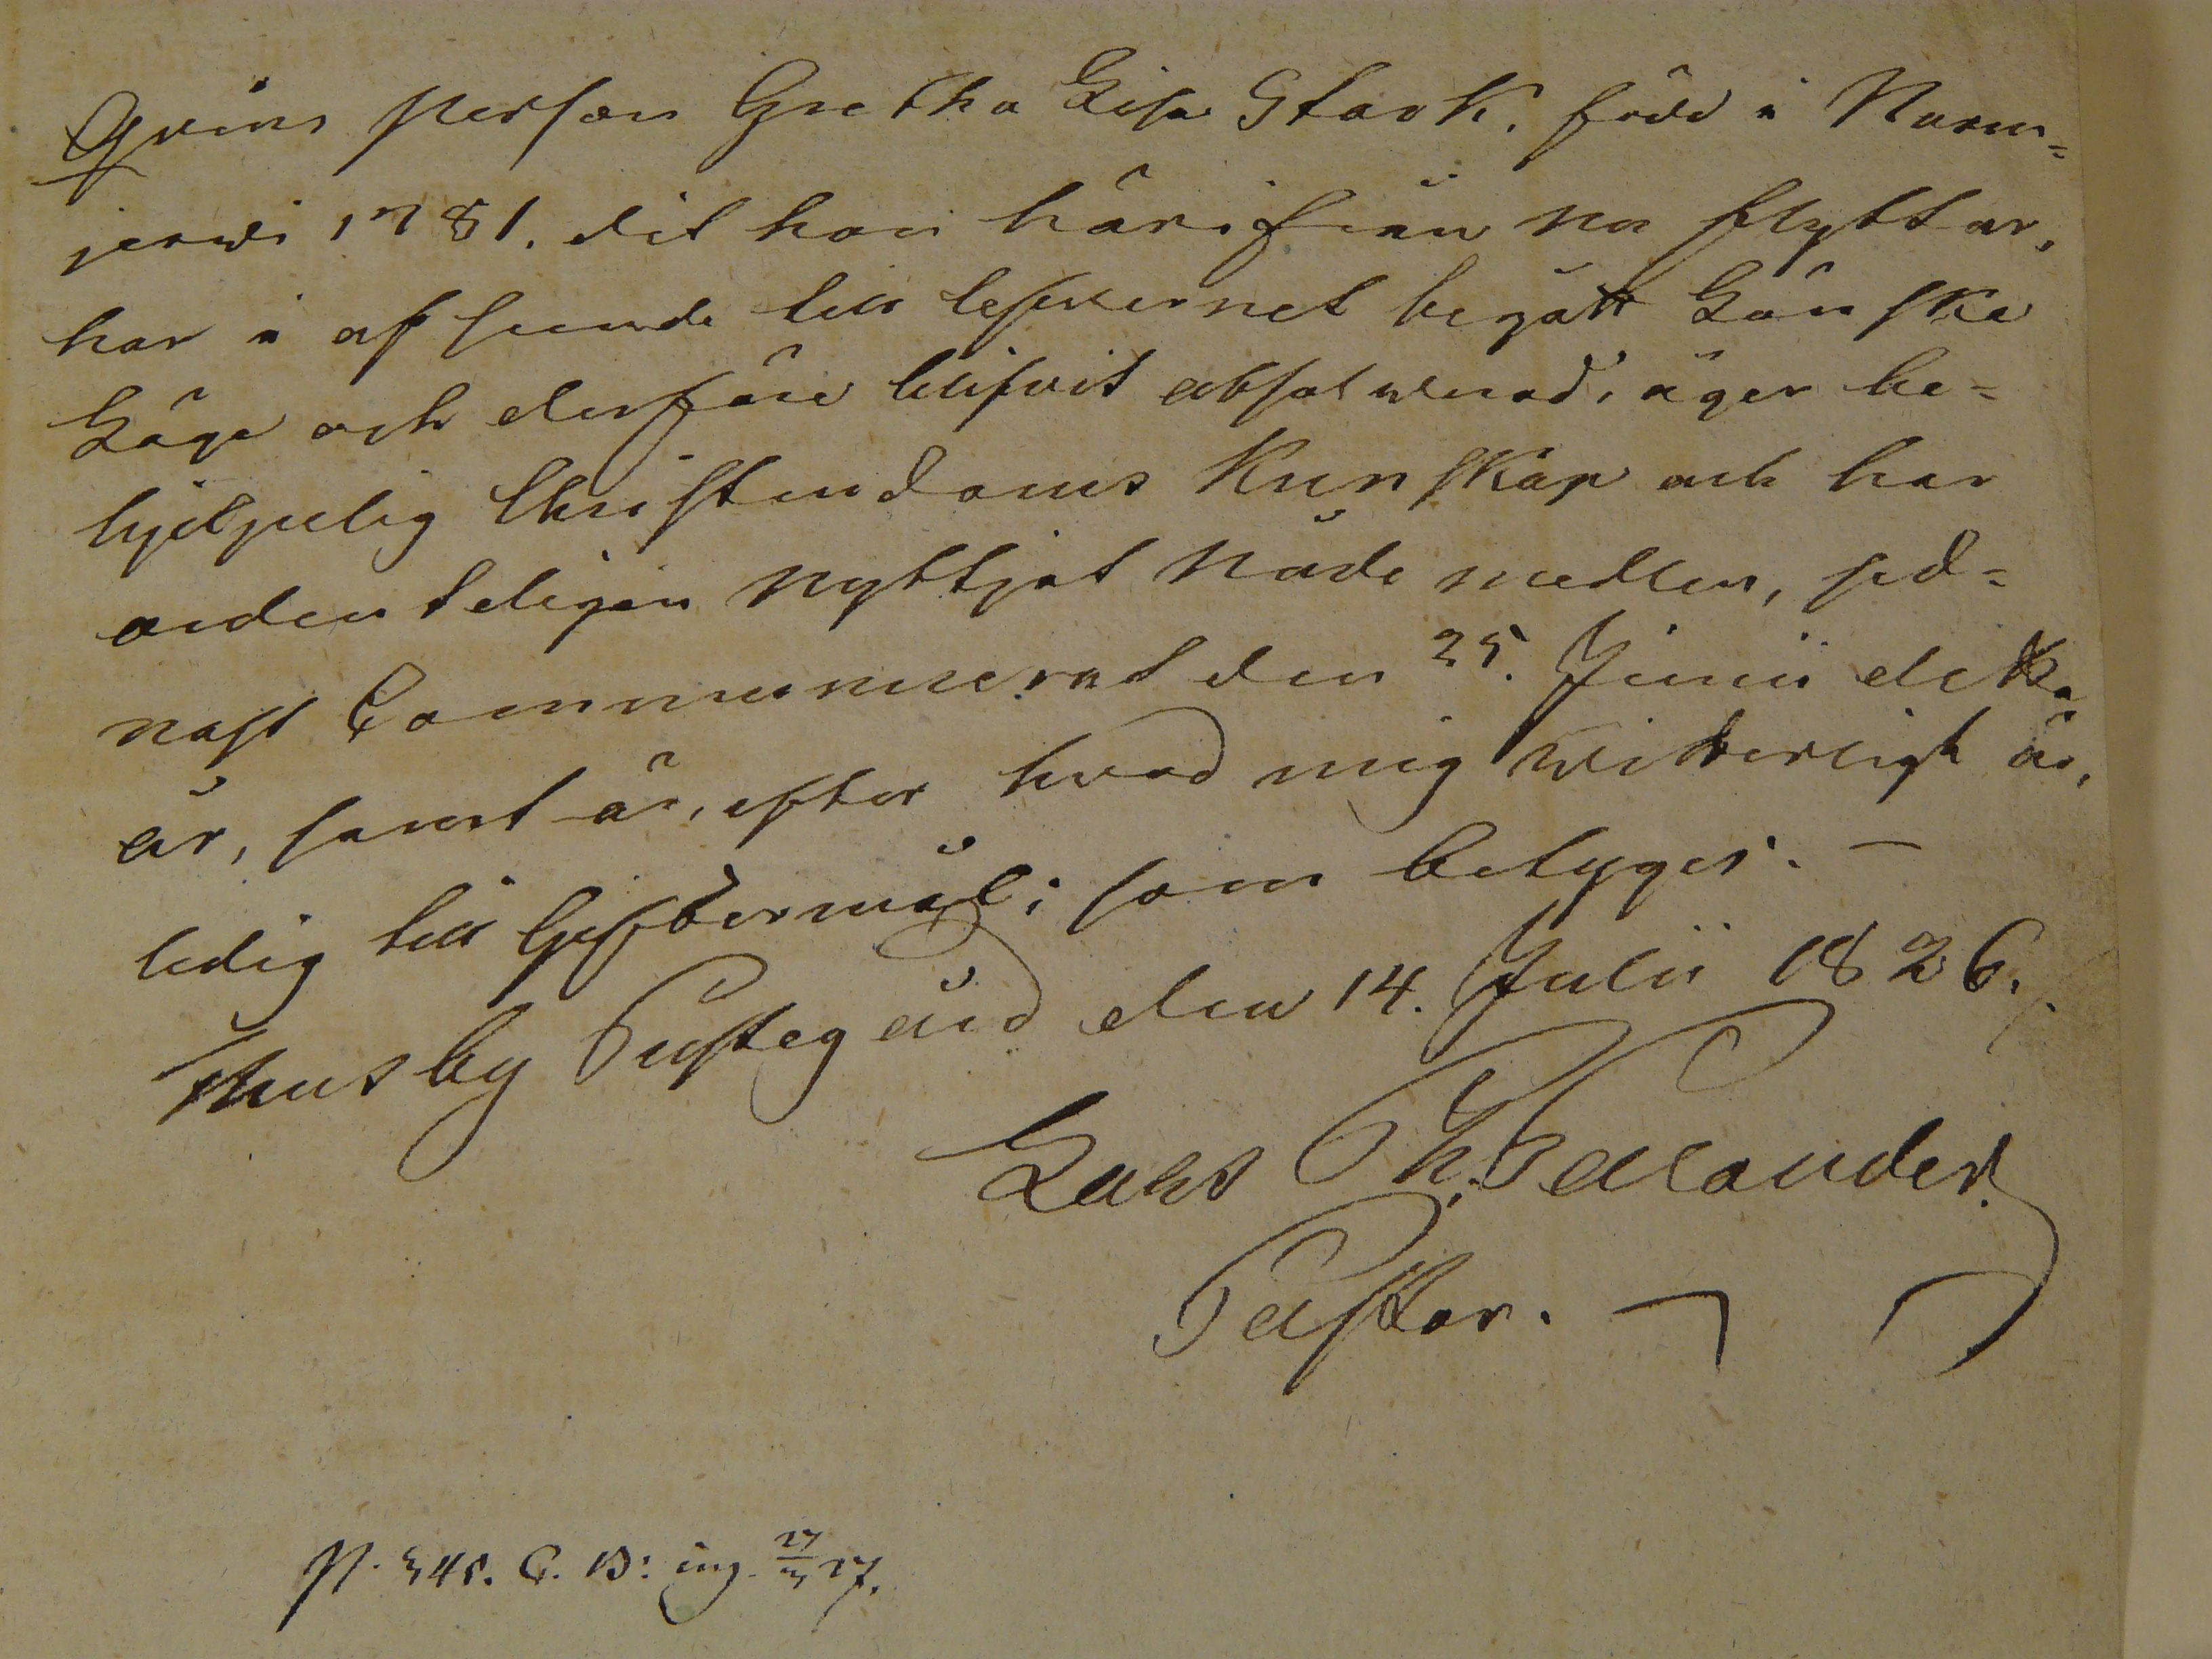 Qvins person Gretha Lisa Stark. född i Nurm=
jerwi 1781. dit hon härifrån nu flyttar,
har i afseende till lefwernet begått Lönska
Läge och derföre blifvit absolwerad, äger be=
hjelpelig Christendoms Kunskap och har
ordenteligen nyttjat Nåde medlen, sed=
nast Communicerat den 25. Junii detta
år, samt är, efter hvad mig witterligt är,
ledig till Giftermål; som betyges. —
Thusby Prestegård den 14. Julii 1826.
Lars Th. Palander.
Pastor.
N. 345. C. B: ing. 27/3 27.